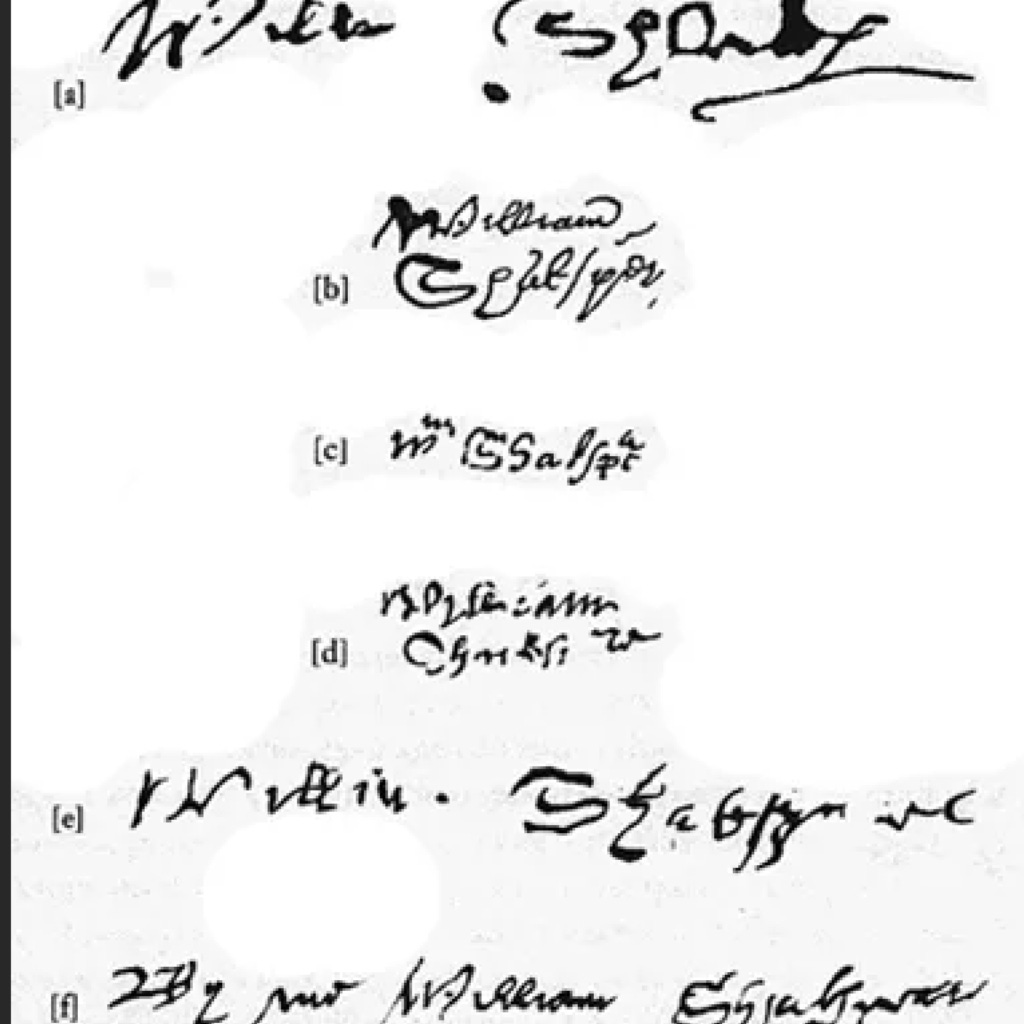 [a] Willm Shakp
[b] William
Shakspēr
[c] Wm Shakspē
[d] William
Shakspere
[e] Willm Shakspere
[f] By me William Shakspeare